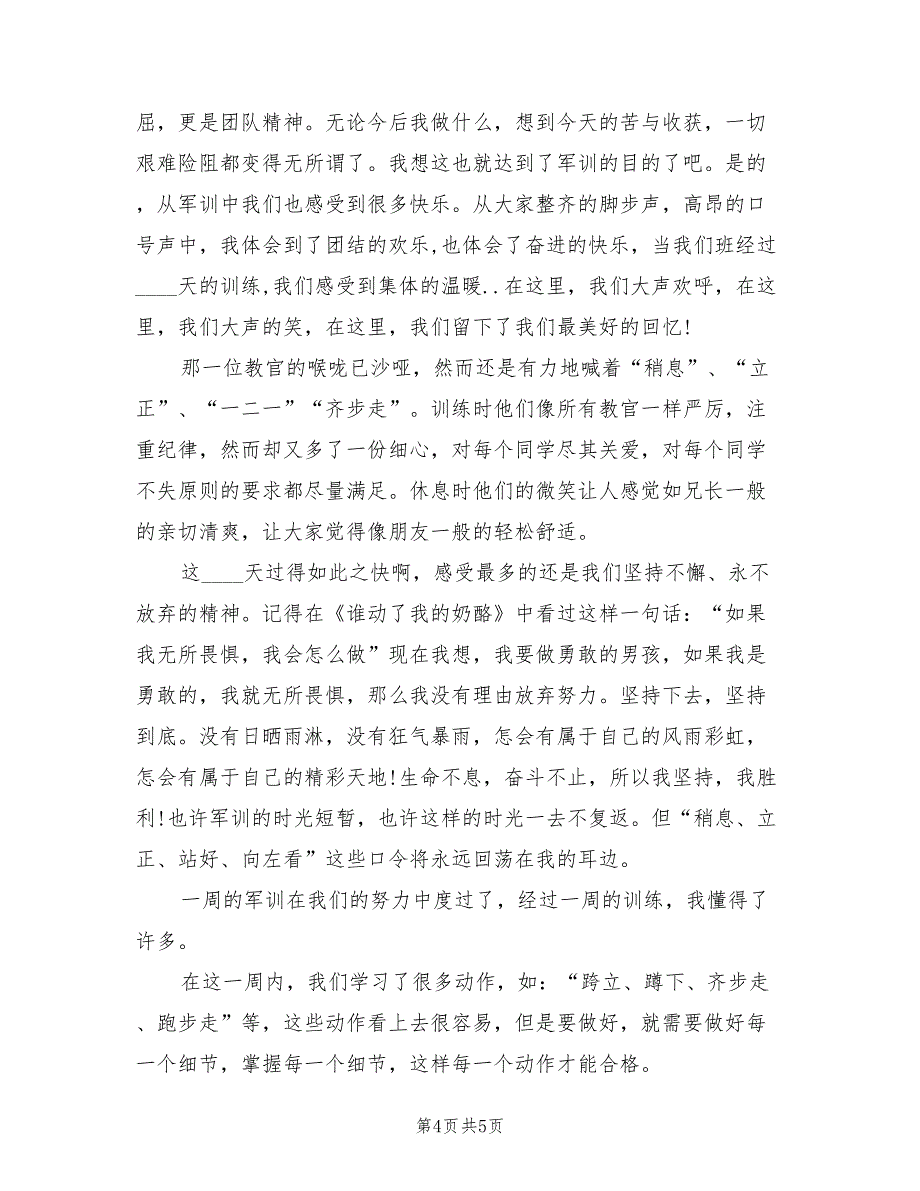 屈，更是团队精神。无论今后我做什么，想到今天的苦与收获，一切
艰难险阻都变得无所谓了。我想这也就达到了军训的目的了吧。是的
，从军训中我们也感受到很多快乐。从大家整齐的脚步声，高昂的口
号声中，我体会到了团结的欢乐,也体会了奋进的快乐，当我们班经过
____天的训练,我们感受到集体的温暖..在这里，我们大声欢呼，在这
里，我们大声的笑，在这里，我们留下了我们最美好的回忆!
那一位教官的喉咙已沙哑，然而还是有力地喊着“稍息”、“立
正”、“一二一”“齐步走”。训练时他们像所有教官一样严厉，注
重纪律，然而却又多了一份细心，对每个同学尽其关爱，对每个同学
不失原则的要求都尽量满足。休息时他们的微笑让人感觉如兄长一般
的亲切清爽，让大家觉得像朋友一般的轻松舒适。
这____天过得如此之快啊，感受最多的还是我们坚持不懈、永不
放弃的精神。记得在《谁动了我的奶酪》中看过这样一句话：“如果
我无所畏惧，我会怎么做”现在我想，我要做勇敢的男孩，如果我是
勇敢的，我就无所畏惧，那么我没有理由放弃努力。坚持下去，坚持
到底。没有日晒雨淋，没有狂气暴雨，怎会有属于自己的风雨彩虹，
怎会有属于自己的精彩天地!生命不息，奋斗不止，所以我坚持，我胜
利!也许军训的时光短暂，也许这样的时光一去不复返。但“稍息、立
正、站好、向左看”这些口令将永远回荡在我的耳边。
一周的军训在我们的努力中度过了，经过一周的训练，我懂得了
许多。
在这一周内，我们学习了很多动作，如：“跨立、蹲下、齐步走
、跑步走”等，这些动作看上去很容易，但是要做好，就需要做好每
一个细节，掌握每一个细节，这样每一个动作才能合格。
第4页共5页